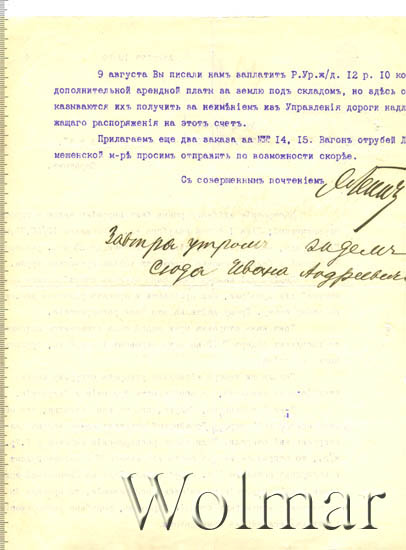 9 августа Вы писали намъ заплатить Р.Ур.ж/д. 12 р. 10 ко
дополнительной арендной платы за землю подъ складомъ, но здѣсь о
казываются ихъ получить за неимѣніемъ изъ Управленія дороги надл
жащаго распоряженія на этотъ счетъ.
Прилагаемъ еще два заказа за №№ 14, 15. Вагонъ отрубей
мешенской м-рѣ просимъ отправить по возможности скорѣе.
Съ совершеннымъ почтеніемъ
Завтра утромъ
сюда Ивана Андреевича
Wolmar